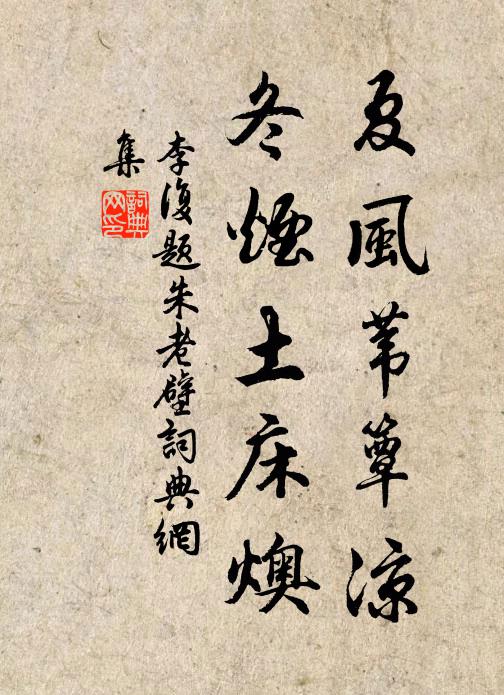 夏風葦簟涼
冬煙土床燠
李復題朱老壁詞典網
集
詞典
网印